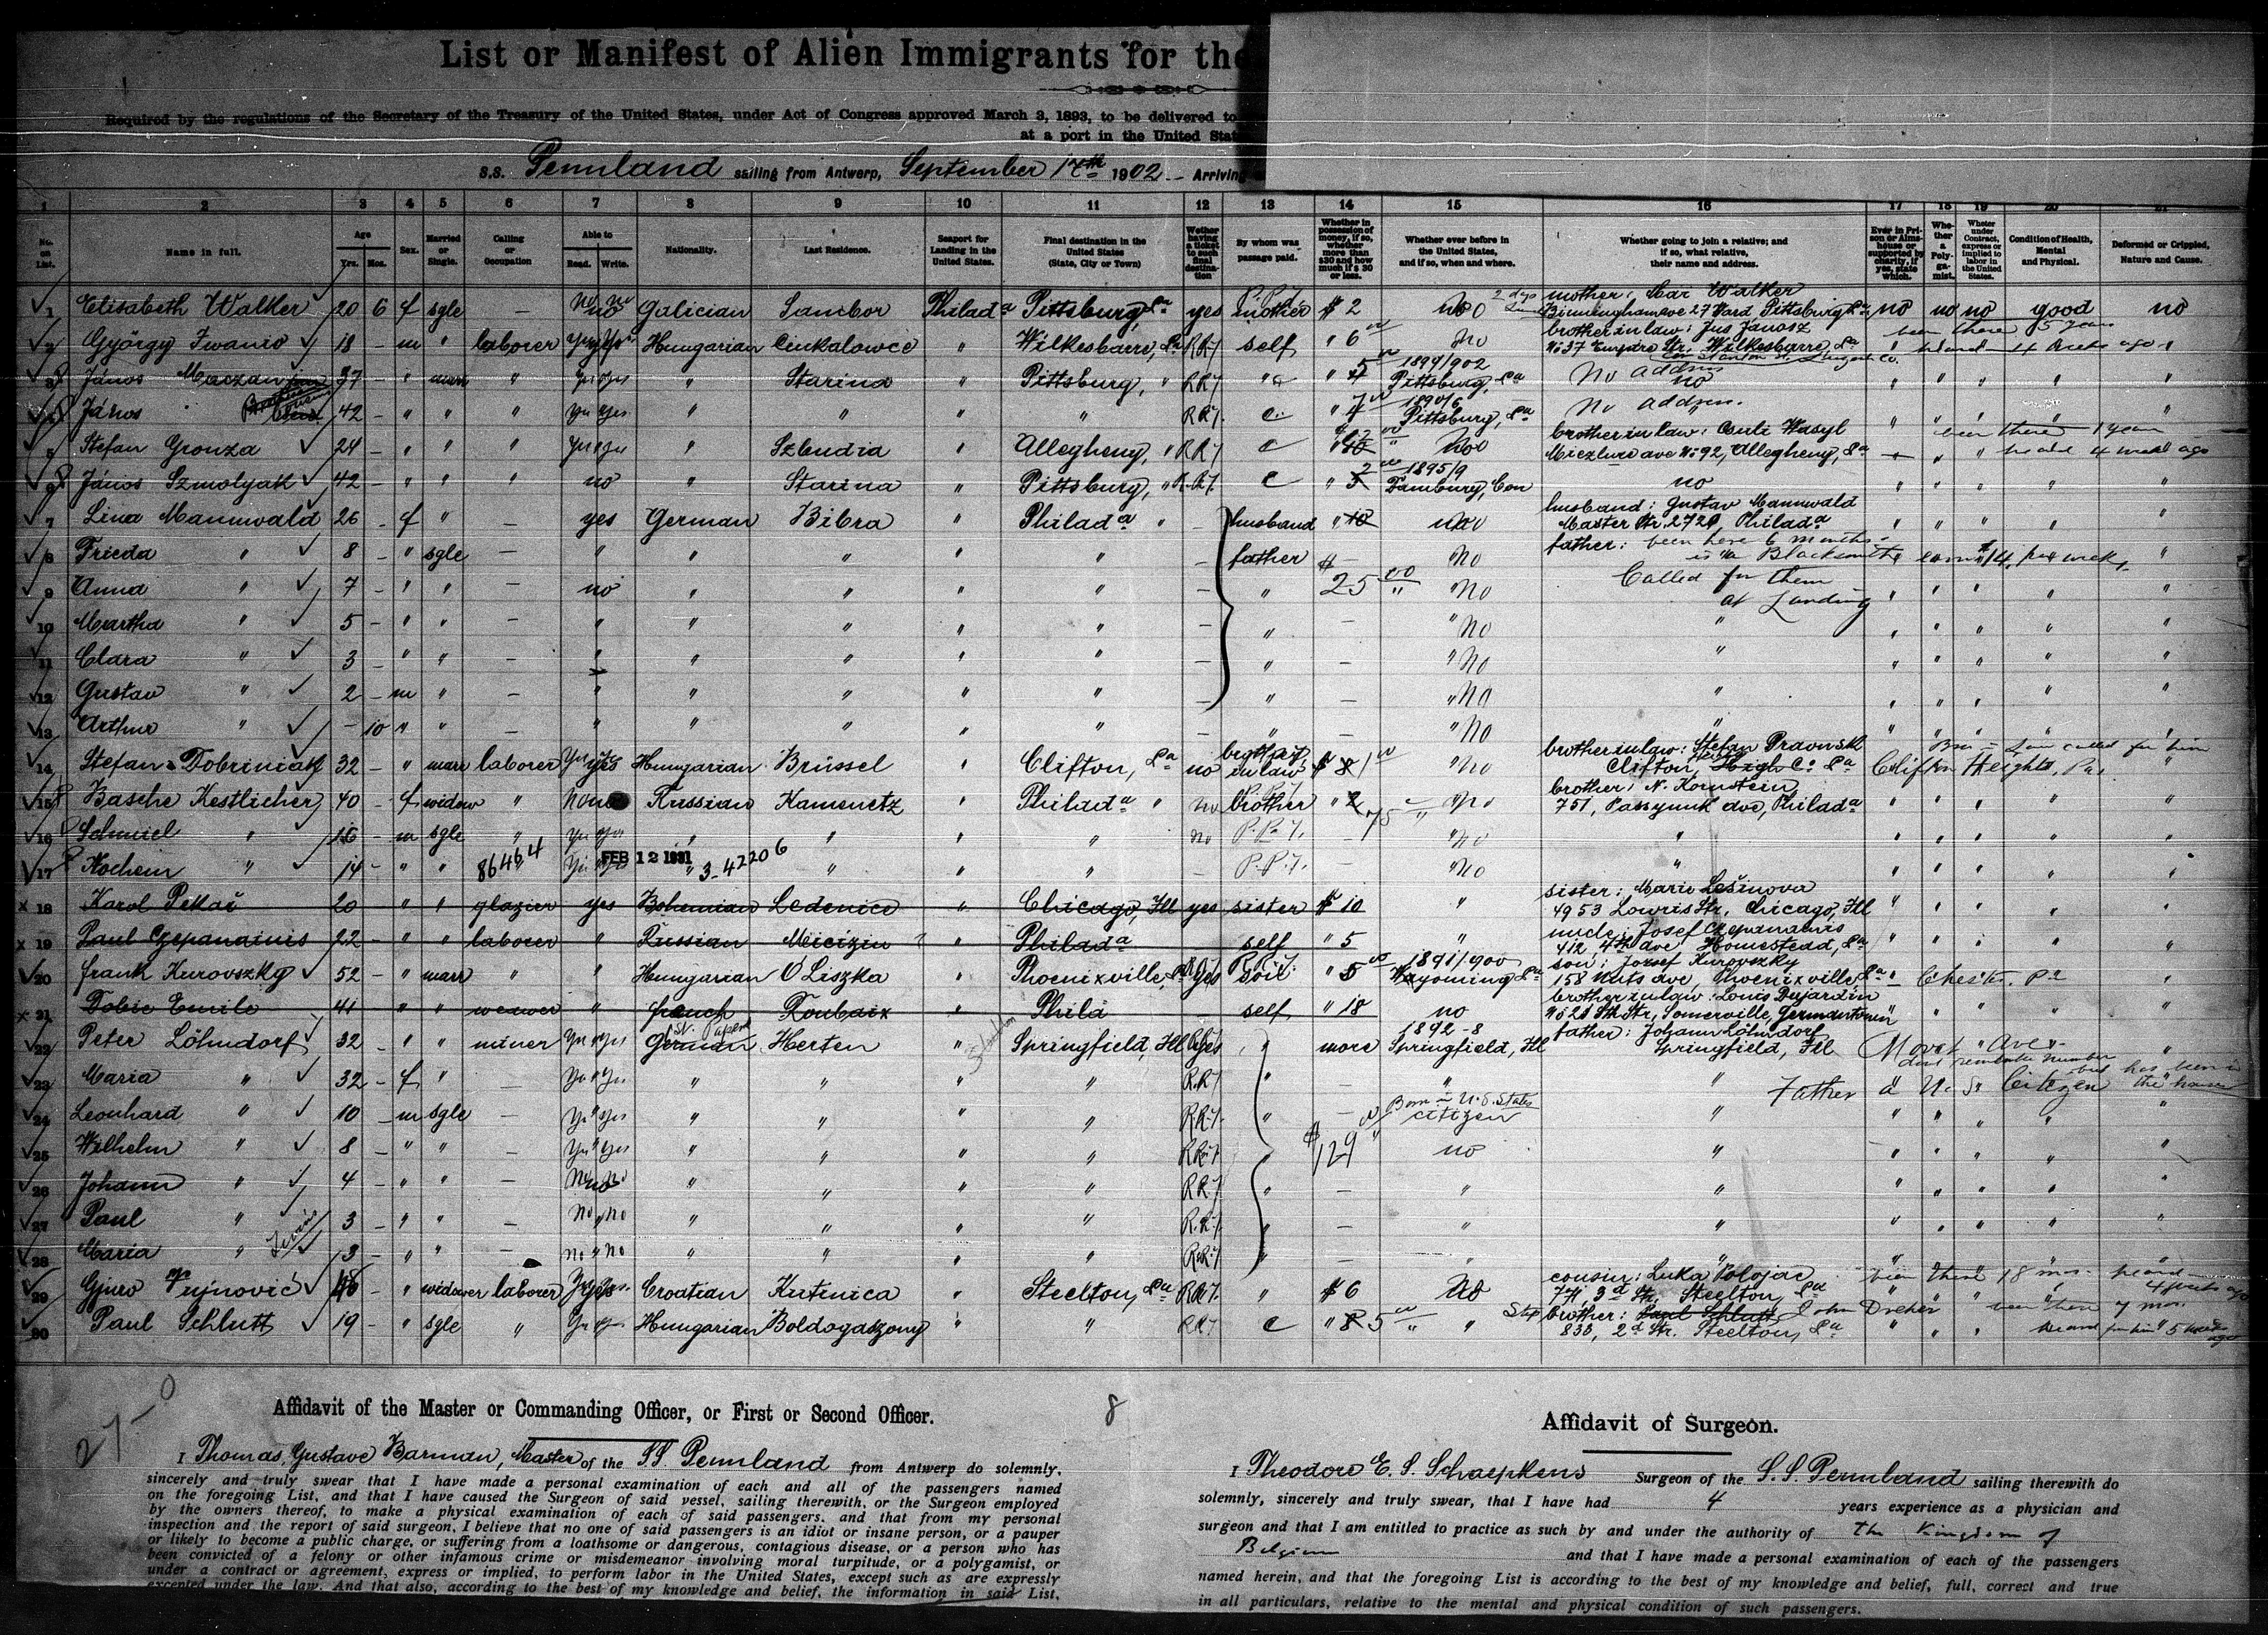 List or Manifest of Alien Immigrants for the
Required by the regulations of the Secretary of the Treasury of the United States, under Act of Congress approved March 3, 1893, to be delivered to
at a port in the United Stat
S.S. Pennland sailing from Antwerp, September 17th 1902 - Arriving
1 2 3 4 5 6 7 8 9 10 11 12 13 14 15 16 17 18 19 20 21
No. on List. Name in full. Age Yrs. Mos. Sex. Married or Single. Calling or Occupation Able to Read. Write. Nationality. Last Residence. Seaport for Landing in the United States. Final destination in the United States (State, City or Town) Wether having a ticket to such final destination By whom was passage paid. Whether in possession of money, if so, whether more than $30 and how much if $ 30 or less. Whether ever before in the United States, and if so, when and where. Whether going to join a relative; and if so, what relative, their name and address. Ever in Prison or Almshouse or supported by charity, if yes, state which. Whether a Polygamist. Wheter under Contract, express or implied to labor in the United States. Condition of Health, Mental and Physical. Deformed or Crippled, Nature and Cause.
1 Elisabeth Walker 20 6 f sgle — no Galician Sambor Philada Pittsburg, Pa yes mother $ 2 no mother: Mar Walker Birmingham ave 27 Ward Pittsburg Pa no no no good no
2 György Iwanio 18 - m " laborer yes Hungarian Cinkalowce " Wilkesbarre, Pa RRT self " 6 no brother in law: Jus Janosz No 37 Empire Str. Wilkesbarre, Pa been there 5 years
3 János 37 - " marr " yes yes " Starina " Pittsburg, " RRT " 5 1899/902 Pittsburg, Pa No address no
4 János 42 - " " " yes yes " " " " RRT " 7 1890/6 Pittsburg, Pa No address.
5 Stefan Gronza 24 - " " " yes yes " Szbudia " Allegheny, " RRT no brother in law: Wasyl ave No 92, Allegheny, Pa been there 1 year
6 János Szmolyak 42 - " " " no " Starina " Pittsburg, " R.R.T. 2 1895/9 Con no
7 Lina Mannwald 26 - f " — yes German Bibra " Philada " — husband " 10 no husband: Gustav Mannwald Master Str. 2720, Philada
8 Frieda " 8 - " sgle — " " " " " — father — No father: been here 6 months - is a Blacksmith earns $14. per week.
9 Anna " 7 - " " — no " " " " — " $ 25 00 " No Called for them at Landing
10 Martha " 5 - " " - " " " " " — " — " No "
11 Clara " 3 - " " — " " " " " — " — " No "
12 Gustav " 2 - m " — " " " " " — " — " No "
13 Arthur " - 10 " " - " " " " " " — " No "
14 Stefan Dobriniak 32 - " marr laborer yes Hungarian Brüssel " Clifton, Pa no brother in law $ 1 " No brother in law: Stefan Pravnski Clifton, Pa Bro in Law called for him Clifton Heights, Pa.
15 Basche Kestlicher 40 - f widow " no Russian Kamenetz " Philada " no brother " 2 " No brother: N. Kornstein 751, Passyunk ave, Philada
16 Schmiel " 16 - m sgle " yes yes " " " " no P.P.T. — " No "
17 Nochem " 14 - " " " 86464 yes yes FEB 12 1931 " 3-42206 " " " — P.P.T. " No "
x 18 Karol Pekař 20 " " glazier yes Bohemian Ledenice " Chicago, Ill yes sister $ 10 " sister: Marie Lešinova 4953 Lowris Str. Chicago, Ill
x 19 Paul Czepanainis 22 - " " laborer " Russian Micizin " Philada self " 5 " uncle: Josef Czepanainis 412, 4th ave Homestead, Pa
20 Frank Kurovszky 52 - " marr " " Hungarian O Liszka " Phoenixville, Pa yes " 5 1891/900 Wyoming Pa son: Jozsef Kurovszky 158 Nuts ave, Phoenixville, Pa Chester. Pa
x 21 Tobie Emile 41 " " weaver " french Roubaix " Phila self " 18 no brother in law: Louis Dejardin No 21 5th Str, Somerville, Germantown
22 Peter Löhndorf 32 - " " miner yes yes German Herten " Springfield, Ill yes " more 1892-8 Springfield, Ill father: Johann Löhndorf Springfield, Ill
23 Maria " 32 - f " — yes yes " " " " R.R.T " — " " Father a U. S. Citizen
24 Leonhard " 10 - m sgle — yes yes " " " " RRT. " — Born in U.S. States citizen "
25 Wilhelm " 8 - " " — yes yes " " " " RRT " $129 no "
26 Johann " 4 - " " — no no " " " " RRT " — " "
27 Paul " 3 - " " — no no " " " " R.R.T. " — " "
28 Maria " 3 - " " — no no " " " " R.R.T " — "
29 Gjuro Vujnović 48 - " widower laborer yes Croatian Kutinica " Steelton, Pa RRT. " $ 6 No cousin: Luka Polojac 3d Str. Steelton, Pa been there 18 mos. heard 4 weeks ago
30 Paul Schlutt 19 - " sgle " yes yes Hungarian Boldogaszony " " RRT " 5 " " Step brother: Paul Schlutt John Dreher 833, 2d Str. Steelton, Pa been there 7 mos. heard from him 5 weeks ago
27-0
8
Affidavit of the Master or Commanding Officer, or First or Second Officer.
I Thomas, Gustave Barman, Master of the SS Pennland from Antwerp do solemnly,
sincerely and truly swear that I have made a personal examination of each and all of the passengers named
on the foregoing List, and that I have caused the Surgeon of said vessel, sailing therewith, or the Surgeon employed
by the owners thereof, to make a physical examination of each of said passengers, and that from my personal
inspection and the report of said surgeon, I believe that no one of said passengers is an idiot or insane person, or a pauper
or likely to become a public charge, or suffering from a loathsome or dangerous, contagious disease, or a person who has
been convicted of a felony or other infamous crime or misdemeanor involving moral turpitude, or a polygamist, or
under a contract or agreement, express or implied, to perform labor in the United States, except such as are expressly
excepted under the law. And that also, according to the best of my knowledge and belief, the information in said List,
Affidavit of Surgeon.
I Theodore E. S. Schaepkens Surgeon of the S.S. Pennland sailing therewith do
solemnly, sincerely and truly swear, that I have had 4 years experience as a physician and
surgeon and that I am entitled to practice as such by and under the authority of the Kingdom of
Belgium and that I have made a personal examination of each of the passengers
named herein, and that the foregoing List is according to the best of my knowledge and belief, full, correct and true
in all particulars, relative to the mental and physical condition of such passengers.